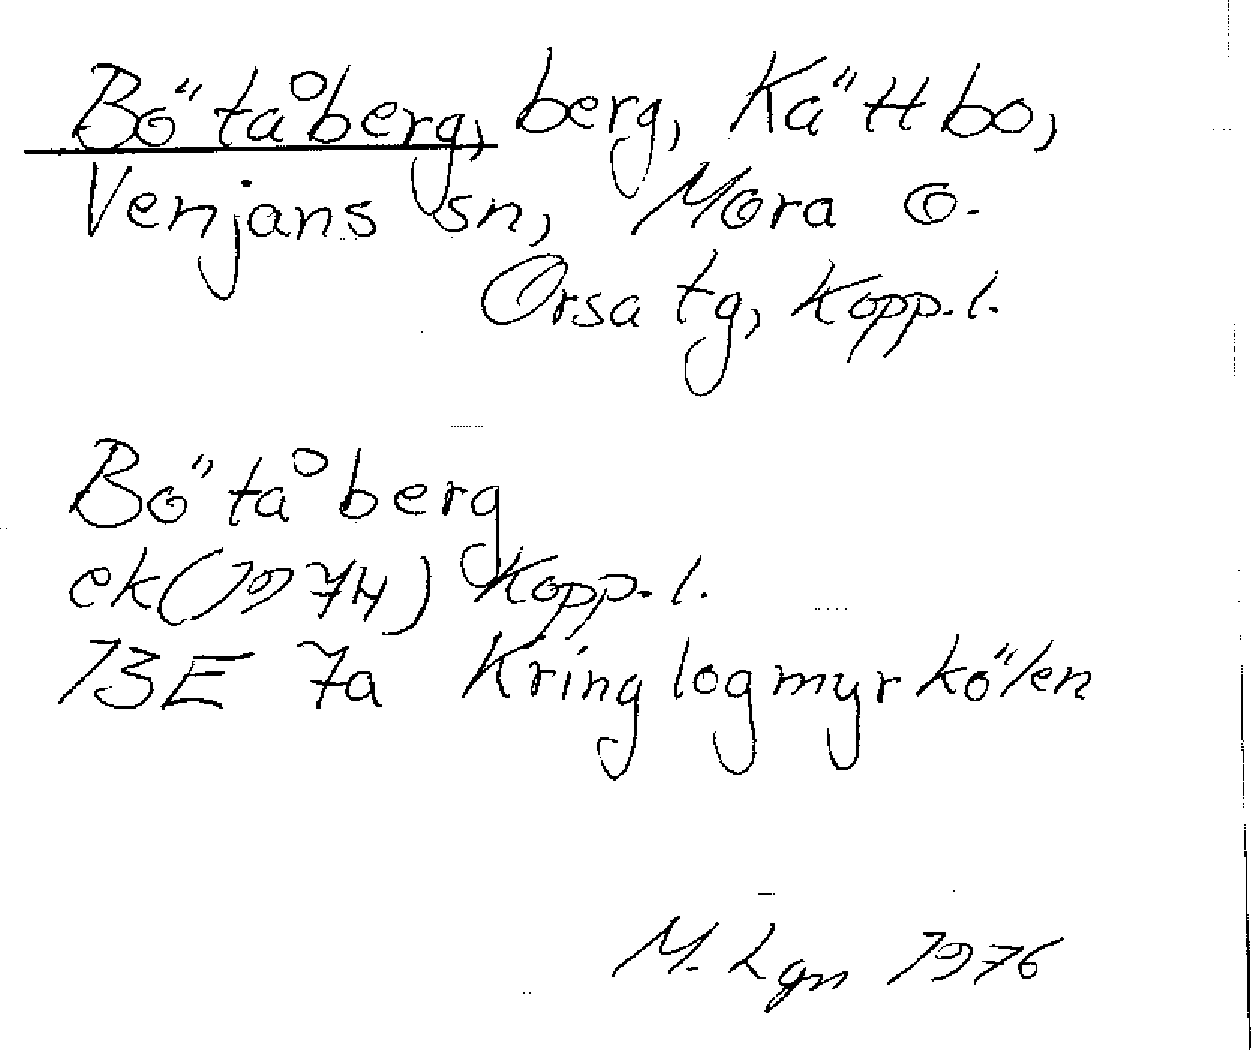 Bötåberg, berg, Kättbo,
Venjans sn, Mora o.
Orsa tg, Kopp.l.
Bötåberg
ek(1974) Kopp.l.
13E 7a Kringlogmyrkölen
M. Lgn 1976